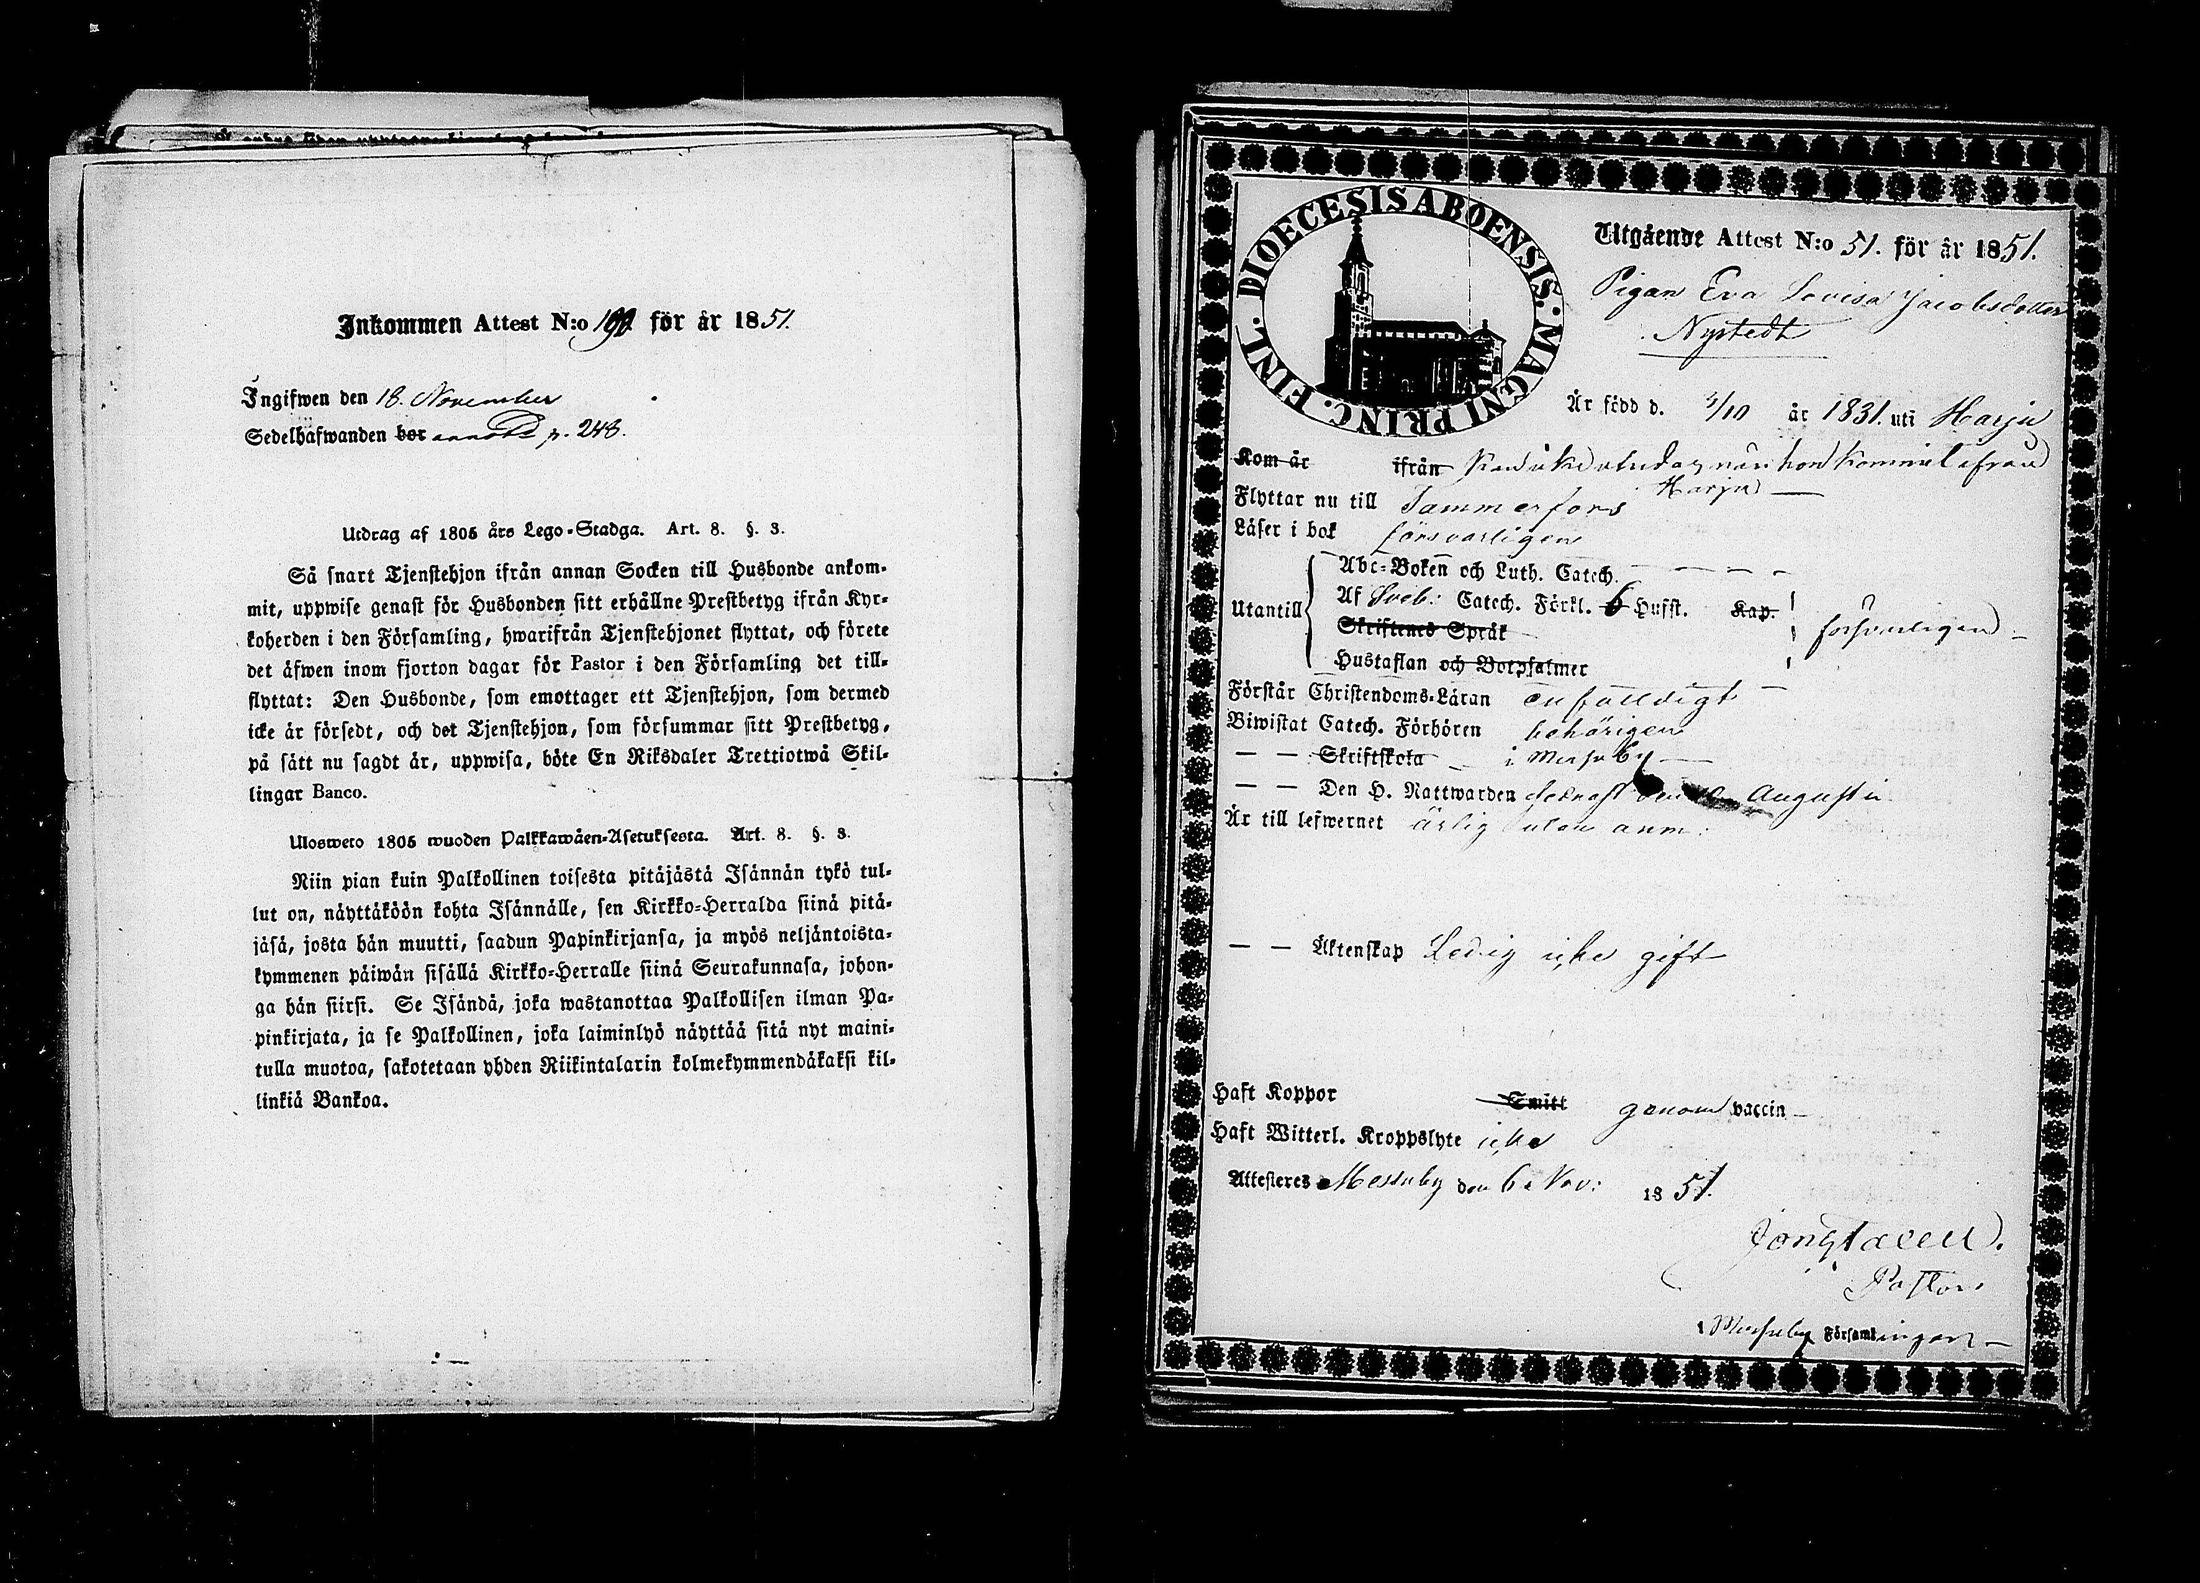 Inkommen Attest N:o 199. för år 1851.
Ingifwen den 18. November
Sedelhafwanden bor annotd p. 248.
Utdrag af 1805 års Lego-Stadga. Art. 8. §. 3.
Så snart Tjenstehjon ifrån annan Socken till Husbonde ankom-
mit, uppwise genast för Husbonden sitt erhållne Prestbetyg ifrån Kyr-
koherden i den Församling, hwarifrån Tjenstehjonet flyttat, och förete
det äfwen inom fjorton dagar för Pastor i den Församling det till-
flyttat: Den Husbonde, som emottager ett Tjenstehjon, som dermed
icke är försedt, och det Tjenstehjon, som försummar sitt Prestbetyg,
på sätt nu sagdt är, uppwisa, böte En Riksdaler Trettiotwå Skil-
lingar Banco.
Ulosweto 1805 wuoden Palkkawäen-Asetuksesta. Art. 8. §. 3.
Niin pian kuin Palkollinen toisesta pitäjästä Isännän tykö tul-
lut on, näyttäköön kohta Isännälle, sen Kirkko-Herralda siinä pitä-
jäsä, josta hän muutti, saadun Papinkirjansa, ja myös neljäntoista-
kymmenen päiwän sisällä Kirkko-Herralle siinä Seurakunnasa, johon-
ga hän siirsi. Se Isändä, joka wastanottaa Palkollisen ilman Pa-
pinkirjata, ja se Palkollinen, joka laiminlyö näyttää sitä nyt maini-
tulla muotoa, sakotetaan yhden Riikintalarin kolmekymmendäkaksi kil-
linkiä Bankoa.
DIOECESIS ABOENSIS. MAGNI PRINC. FINL.
Utgående Attest N:o 51. för år 1851.
Pigan Eva Lovisa Jacobsdotter
Nystedt
Är född d. /10 år 1831. uti Harju
Kom år ifrån när hon kommit ifrån
Harju
Flyttar nu till Tammerfors
Läser i bok försvarligen
Abc-Boken och Luth. Catech.
Utantill Af Sveb: Catech. Förkl. 6 Hufst. Kap. försvarligen
Skriftenes Språk
Hustaflan och Botpsalmer
Förstår Christendoms-Läran enfaldigt
Biwistat Catech. Förhören behörigen
— — Skriftskola i Messuby
— — Den H. Nattwarden sednast den Augusti
Är till lefwernet ärlig utan anm:
— — Äktenskap Ledig icke gift
Haft Koppor Smitt genom vaccin
Haft Witterl. Kroppslyte icke
Attesteres Messuby den 6 Nov: 1851.
Pastor
i Messuby Församlingen